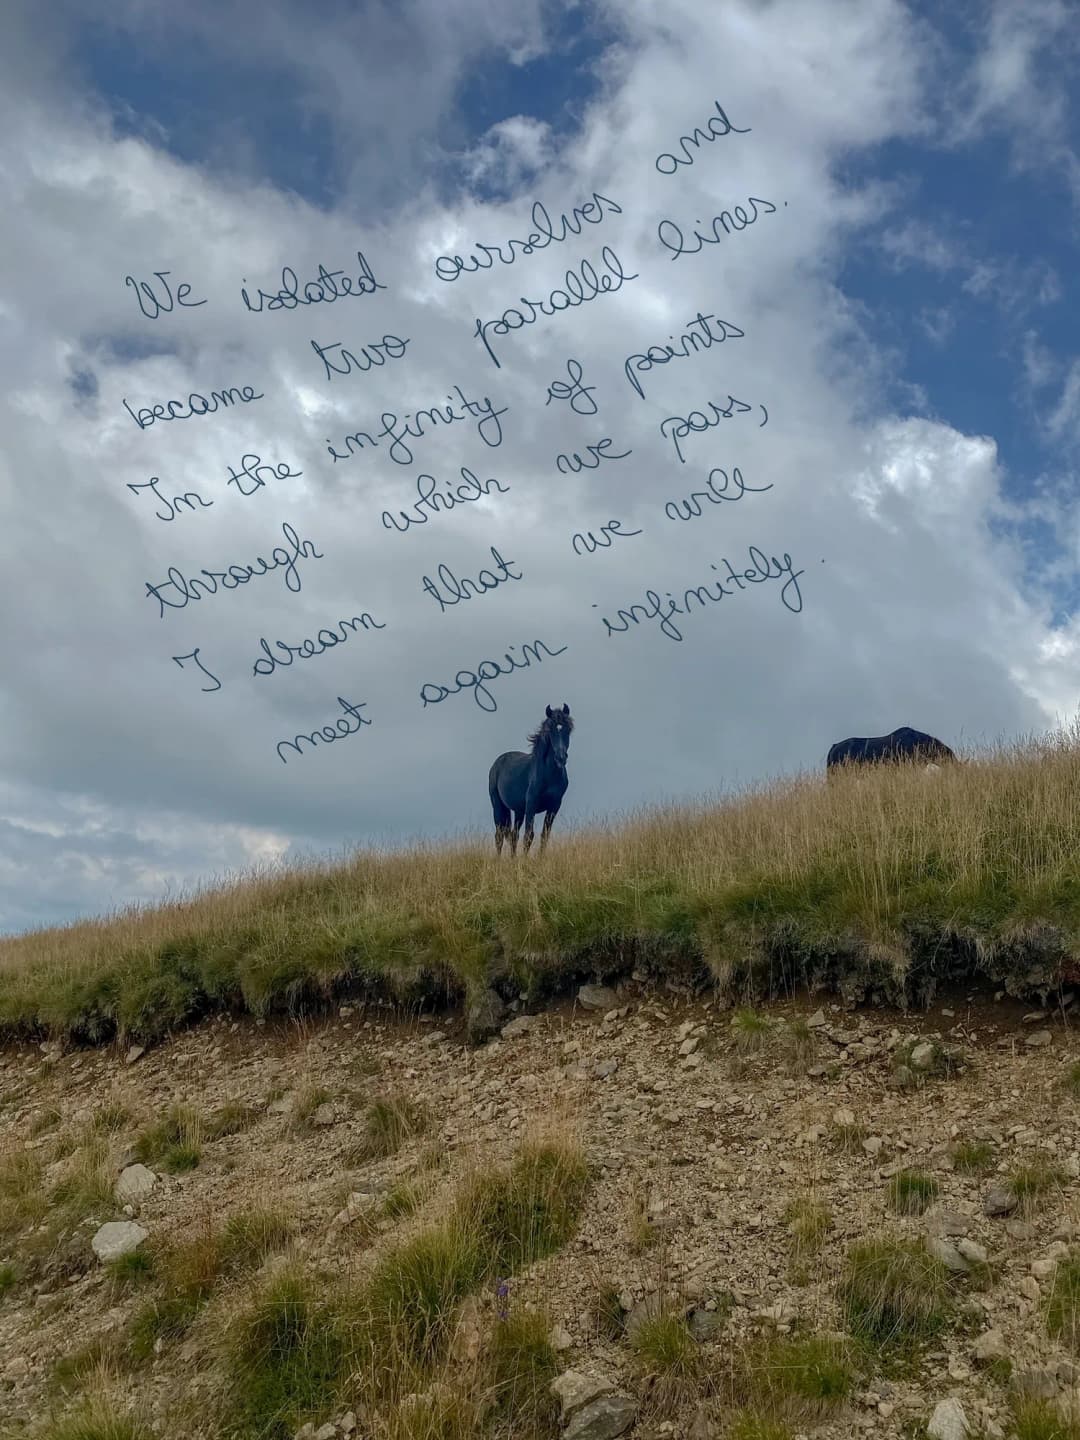 We isolated ourselves and
became two parallel lines.
In the infinity of points
through which we pass,
I dream that we will
meet again infinitely.